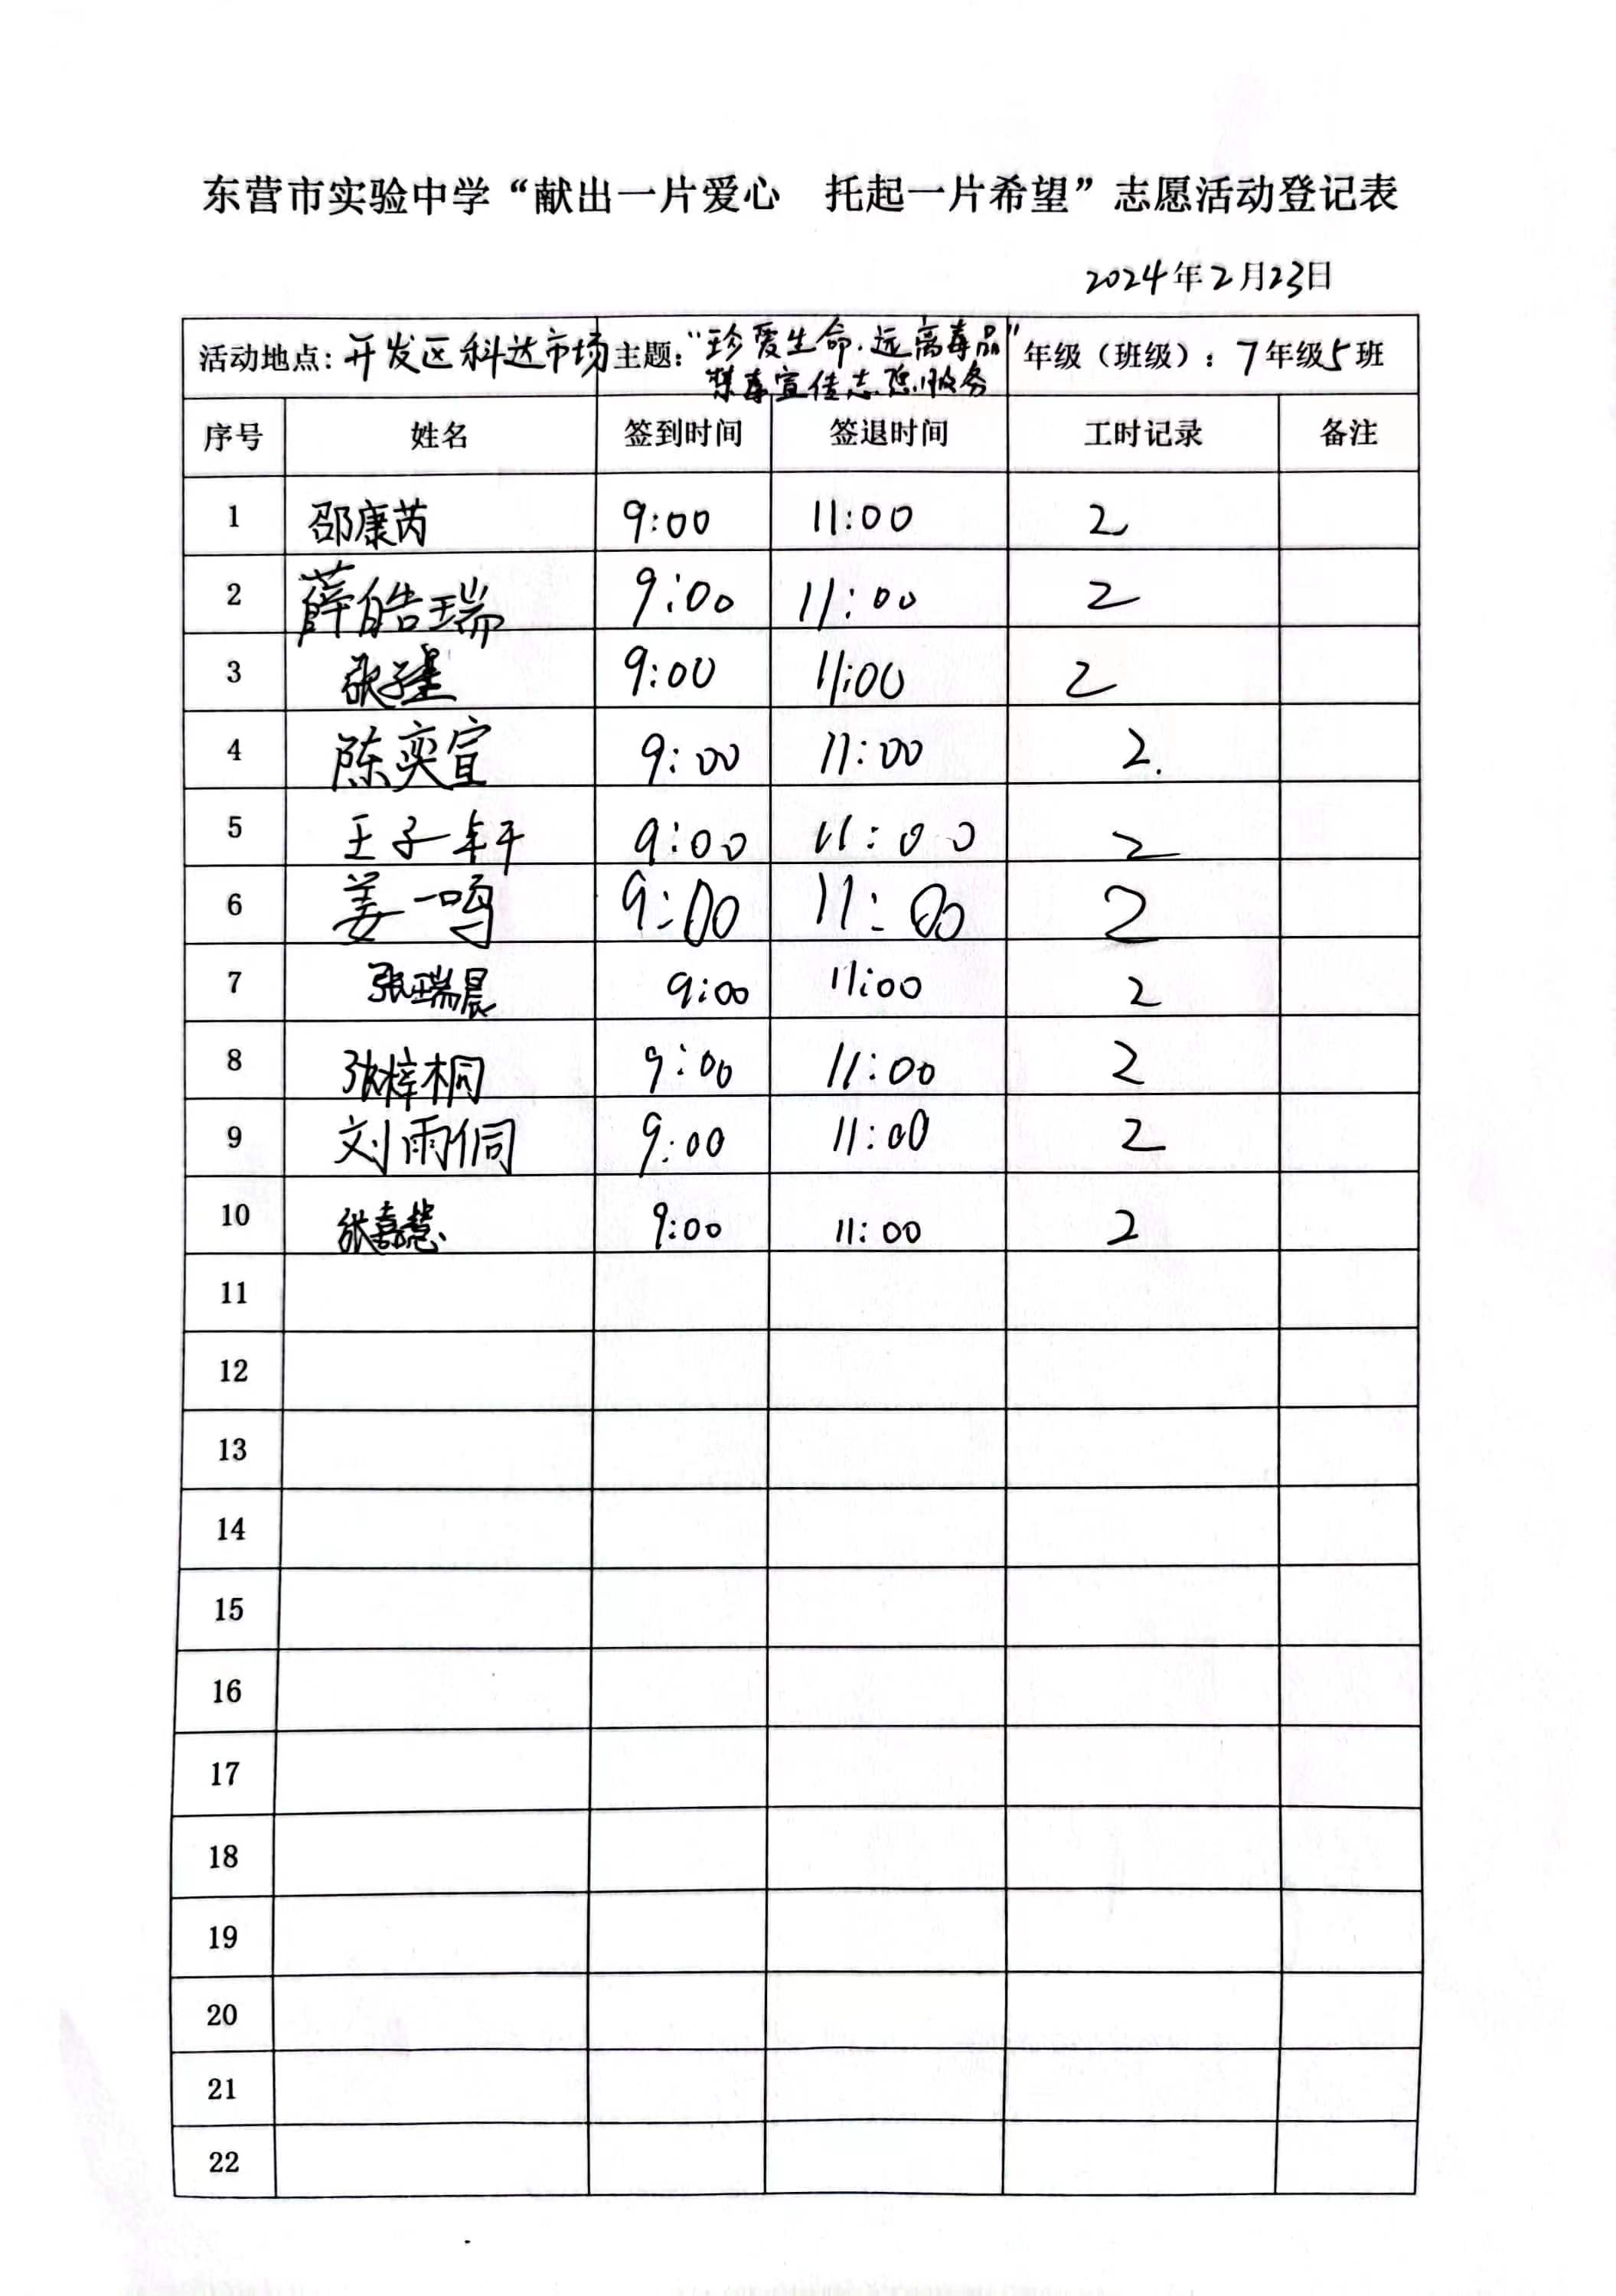 东营市实验中学“献出一片爱心 托起一片希望”志愿活动登记表
2024年2月23日
活动地点：开发区科达市场 主题：“珍爱生命.远离毒品” 年级（班级）：7年级5班
禁毒宣传志愿服务
序号 姓名 签到时间 签退时间 工时记录 备注
1 邵康芮 9:00 11:00 2
2 薛皓瑞 9:00 11:00 2
3 9:00 11:00 2
4 陈奕宣 9:00 11:00 2.
5 王子轩 9:00 11:00 2
6 姜一鸣 9:00 11:00 2
7 张瑞晨 9:00 11:00 2
8 张梓桐 9:00 11:00 2
9 刘雨侗 9:00 11:00 2
10 张嘉慧 9:00 11:00 2
11
12
13
14
15
16
17
18
19
20
21
22